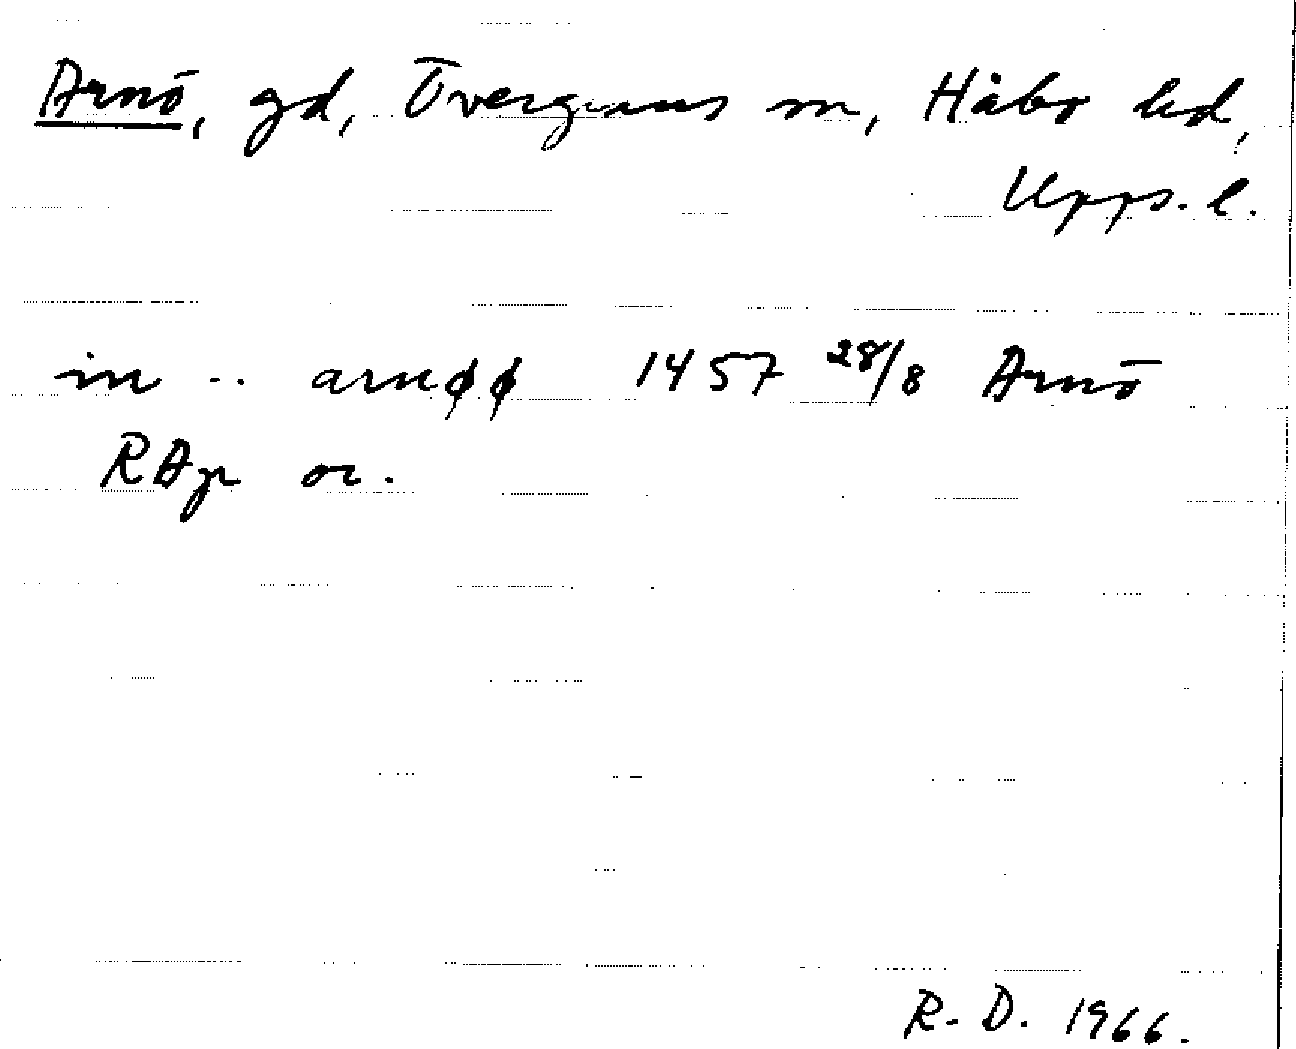 Arnö, gd, Övergrans sn, Håbo hd,
Upps. l.
in .. arnøø 1457 28/8 Arnö
RAp or.
R. D. 1966.